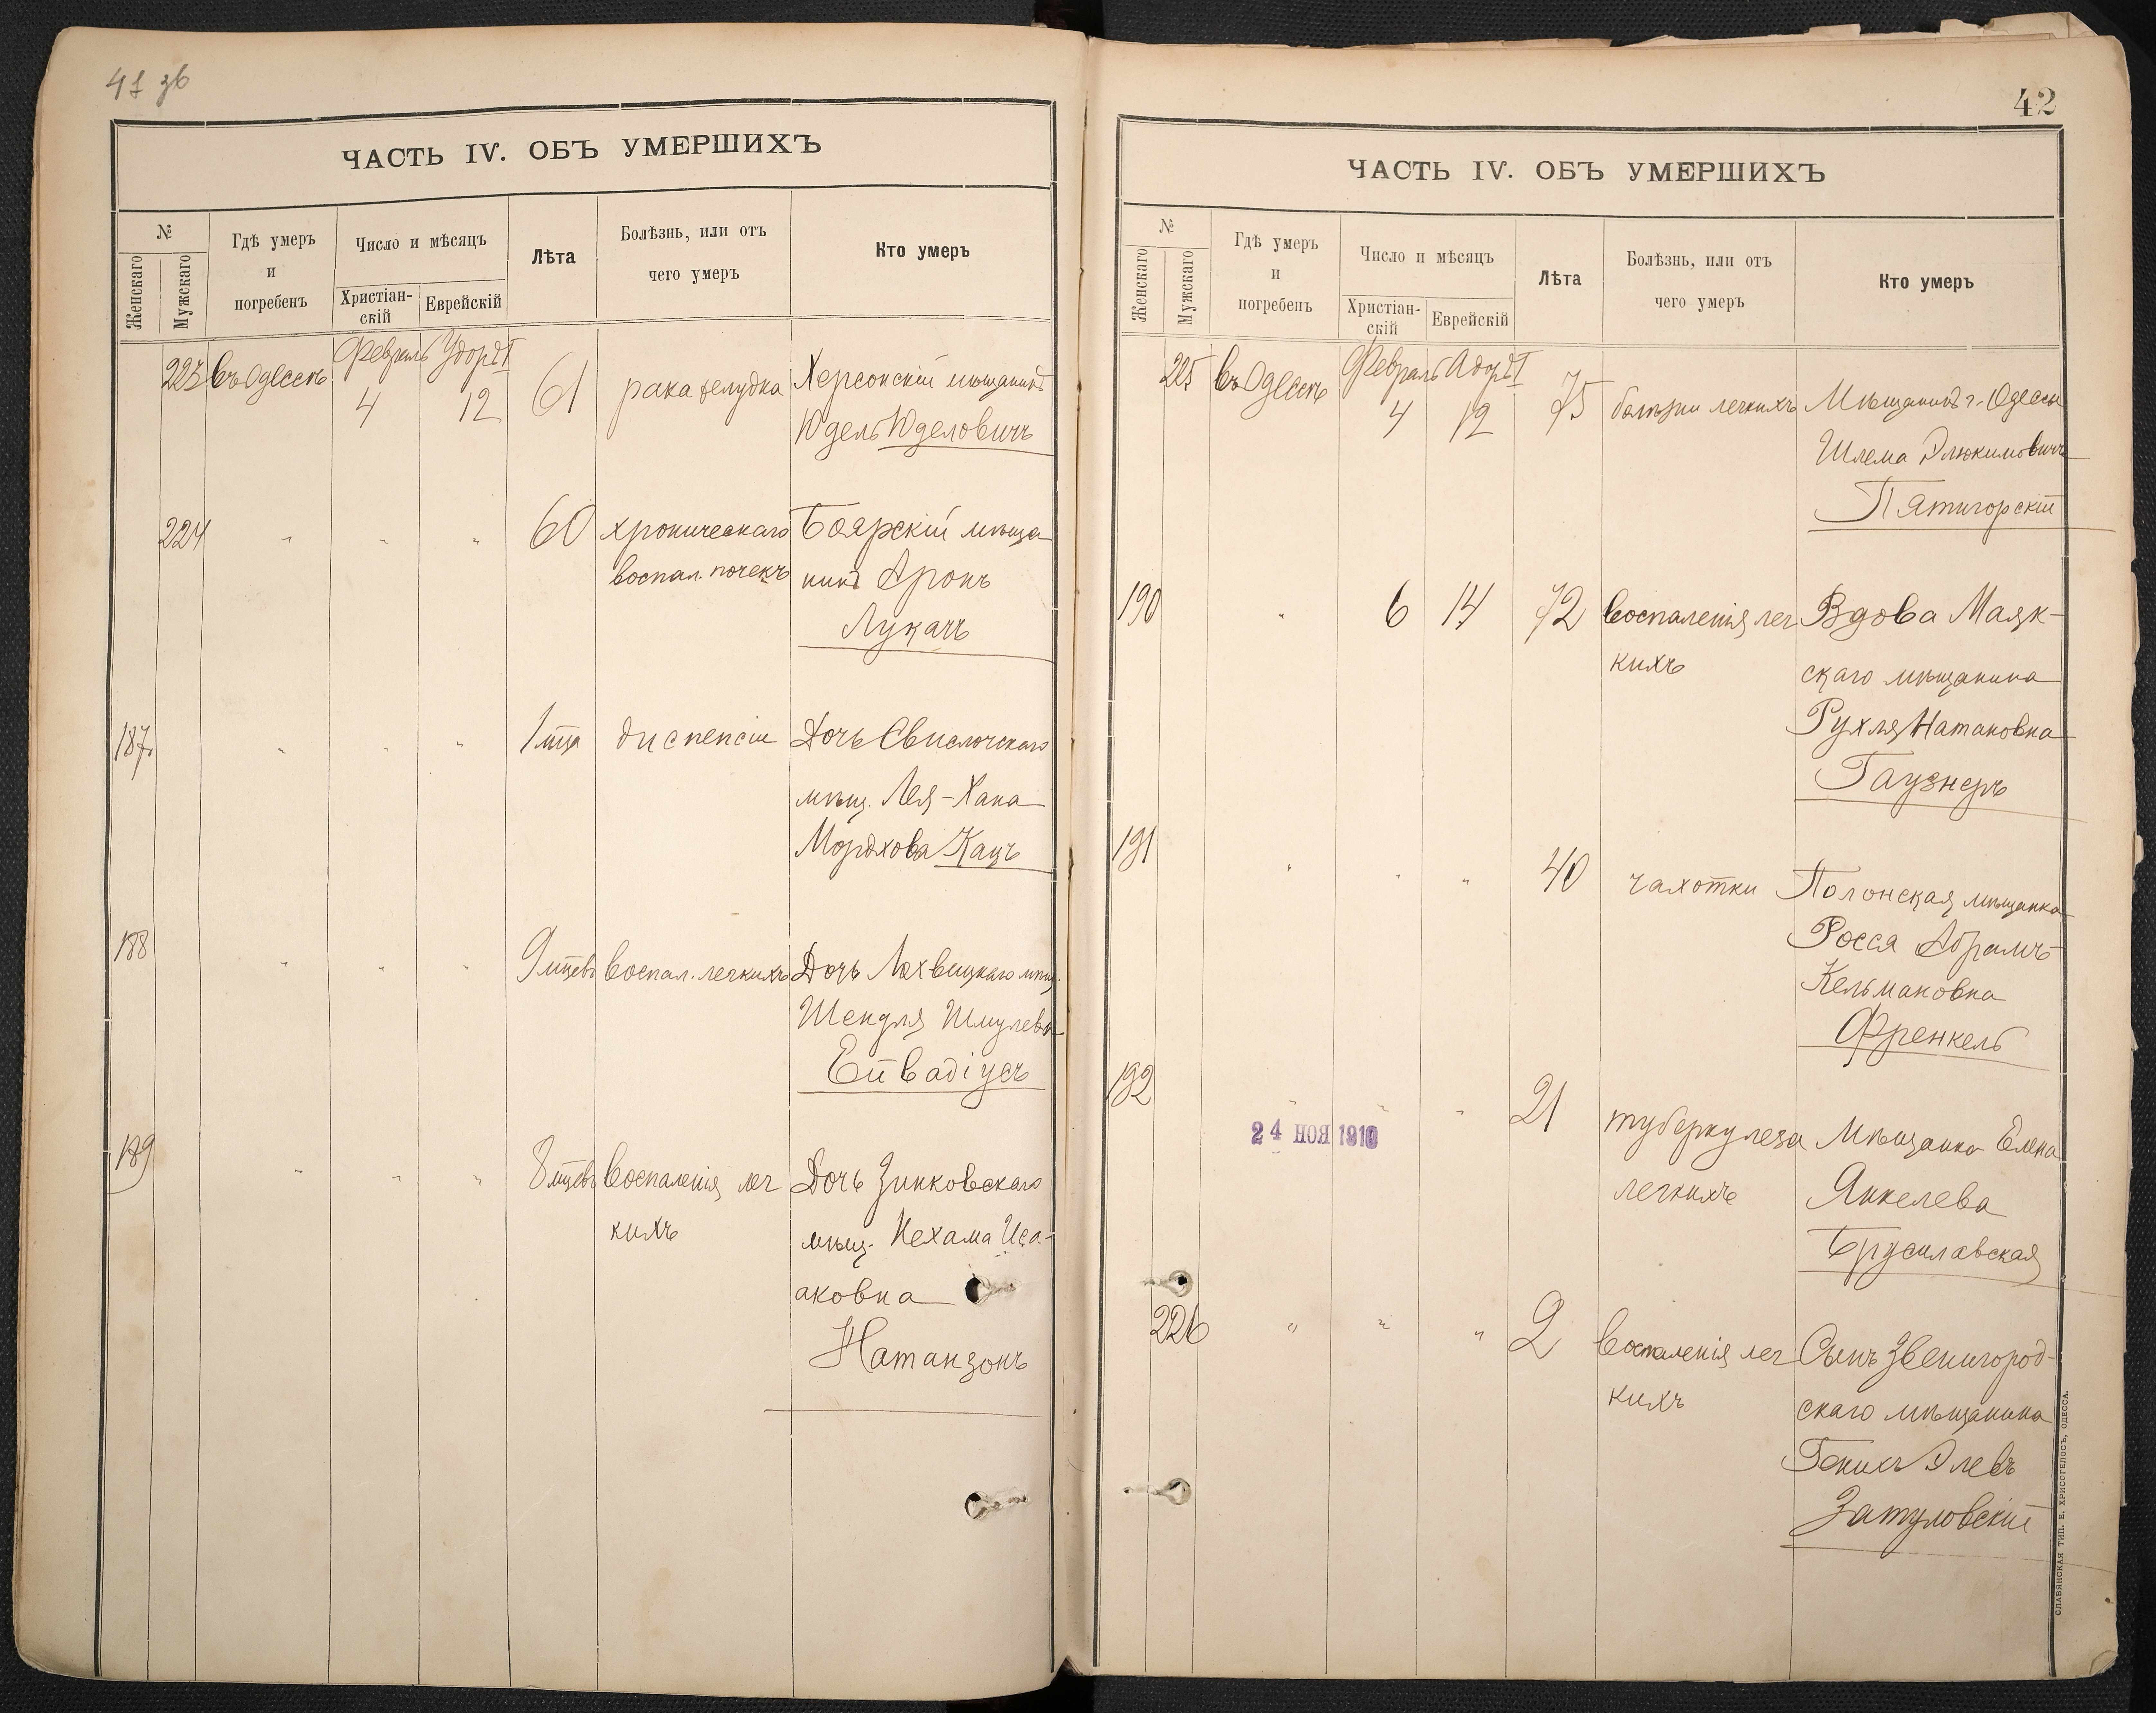 41 зв
ЧАСТЬ IV. ОБЪ УМЕРШИХЪ
№
Женскаго
Мужскаго
Гдѣ умеръ
и
погребенъ
Число и мѣсяцъ
Христіан-
скій
Еврейскій
Лѣта
Болѣзнь, или отъ
чего умеръ
Кто умеръ
Февраль Адоръ I
223 въ Одессѣ 4 12 61 рака желудка Херсонскій мѣщанинъ
Юдель Юделовичъ
224 " " " 60 хроническаго Боярскій мѣща
воспал. почекъ нинъ Аронъ
Лукачъ
187 " " " 1 мца диспепсіи Дочь Свислочскаго
мѣщ. Лея-Хана
Мордхова Кацъ
188 " " " 9 мцевъ воспал. легкихъ Дочь Лохвицкаго мѣщ.
Шендля Шмулева
Ейвадіусъ
189 " " " 8 мцевъ воспаленія лег Дочь Зинковскаго
кихъ мѣщ. Нехама Иса-
аковна
Натанзонъ
42
ЧАСТЬ IV. ОБЪ УМЕРШИХЪ
№
Женскаго
Мужскаго
Гдѣ умеръ
и
погребенъ
Число и мѣсяцъ
Христіан-
скій
Еврейскій
Лѣта
Болѣзнь, или отъ
чего умеръ
Кто умеръ
Февраль Адоръ I
225 въ Одессѣ 4 12 75 болѣзни легкихъ Мѣщанинъ г. Одессы
Шлема Элюкимовичъ
Пятигорскій
190 " 6 14 72 воспаленія лег Вдова Маяк-
кихъ скаго мѣщанина
Рухля Натановна
Гаузнеръ
191 " " " 40 чахотки Полонская мѣщанка
Росся Абрамъ-
Кельмановна
Френкель
192 " " " 21 туберкулеза Мѣщанка Елена
24 НОЯ 1910
легкихъ Янкелева
Бруславская
226 " " " 2 воспаленія лег Сынъ Звенигород-
кихъ скаго мѣщанина
Генихъ Элевъ
Затуловскій
СЛАВЯНСКАЯ ТИП. Е. ХРИСОГЕЛОСЪ, ОДЕССА.